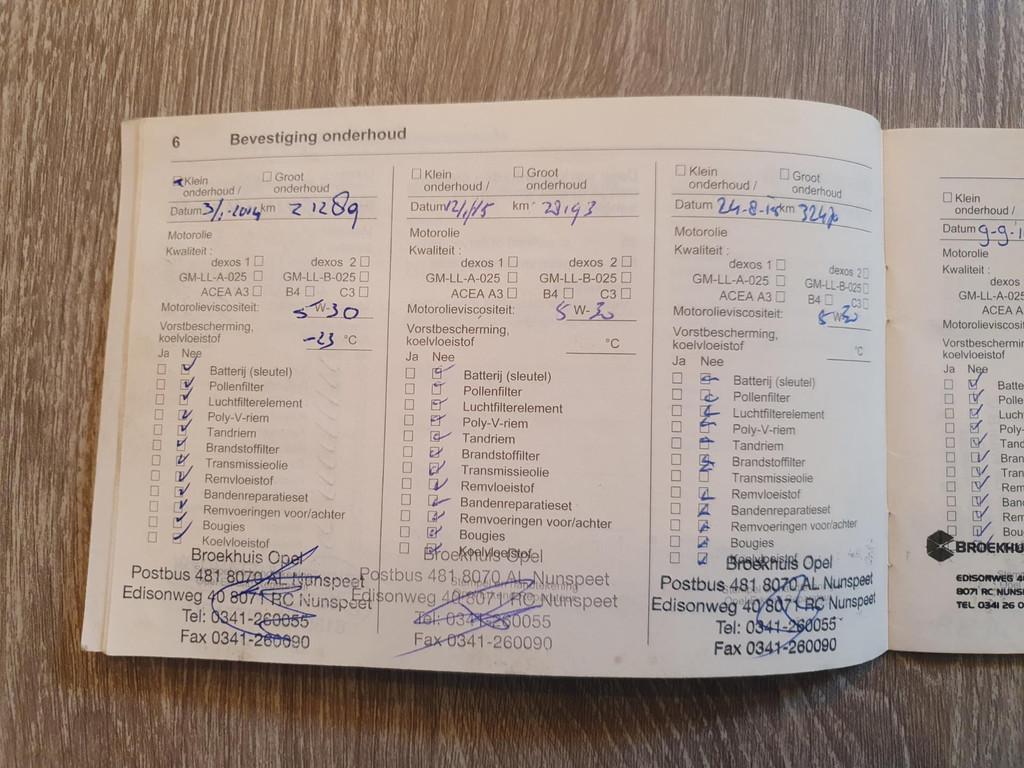 6 Bevestiging onderhoud
Klein onderhoud / Groot onderhoud
Datum 3/1-2014 km 21289
Motorolie
Kwaliteit :
dexos 1 dexos 2
GM-LL-A-025 GM-LL-B-025
ACEA A3 B4 C3
Motorolieviscositeit: 5 W-30
Vorstbescherming,
koelvloeistof -23 °C
Ja Nee
Batterij (sleutel)
Pollenfilter
Luchtfilterelement
Poly-V-riem
Tandriem
Brandstoffilter
Transmissieolie
Remvloeistof
Bandenreparatieset
Remvoeringen voor/achter
Bougies
Koelvloeistof
Broekhuis Opel
Postbus 481 8070 AL Nunspeet
Edisonweg 40 8071 RC Nunspeet
Tel: 0341-260055
Fax 0341-260090
Klein onderhoud / Groot onderhoud
Datum 12/1/15 km 28193
Motorolie
Kwaliteit :
dexos 1 dexos 2
GM-LL-A-025 GM-LL-B-025
ACEA A3 B4 C3
Motorolieviscositeit: 5 W-30
Vorstbescherming,
koelvloeistof °C
Ja Nee
Batterij (sleutel)
Pollenfilter
Luchtfilterelement
Poly-V-riem
Tandriem
Brandstoffilter
Transmissieolie
Remvloeistof
Bandenreparatieset
Remvoeringen voor/achter
Bougies
Koelvloeistof
Broekhuis Opel
Postbus 481 8070 AL Nunspeet
Edisonweg 40 8071 RC Nunspeet
Tel: 0341-260055
Fax 0341-260090
Klein onderhoud / Groot onderhoud
Datum km
Motorolie
Kwaliteit :
dexos 1 dexos 2
GM-LL-A-025 GM-LL-B-025
ACEA A3 B4 C3
Motorolieviscositeit: 5 W-30
Vorstbescherming,
koelvloeistof °C
Ja Nee
Batterij (sleutel)
Pollenfilter
Luchtfilterelement
Poly-V-riem
Tandriem
Brandstoffilter
Transmissieolie
Remvloeistof
Bandenreparatieset
Remvoeringen voor/achter
Bougies
Koelvloeistof
Broekhuis Opel
Postbus 481 8070 AL Nunspeet
Edisonweg 40 8071 RC Nunspeet
Tel: 0341-260055
Fax 0341-260090
Klein
onderhoud /
Datum 9-9-1
Motorolie
Kwaliteit :
GM-LL-A-02
ACEA A
Motorolieviscosit
Vorstbescherming
koelvloeistof
Ja Nee
Batte
Polle
Luch
Poly-
Tand
Bran
Tran
Rem
Ban
Rem
Bou
BROEKHU
EDISONWEG 4
8071 RC NUNS
TEL 0341 26 0